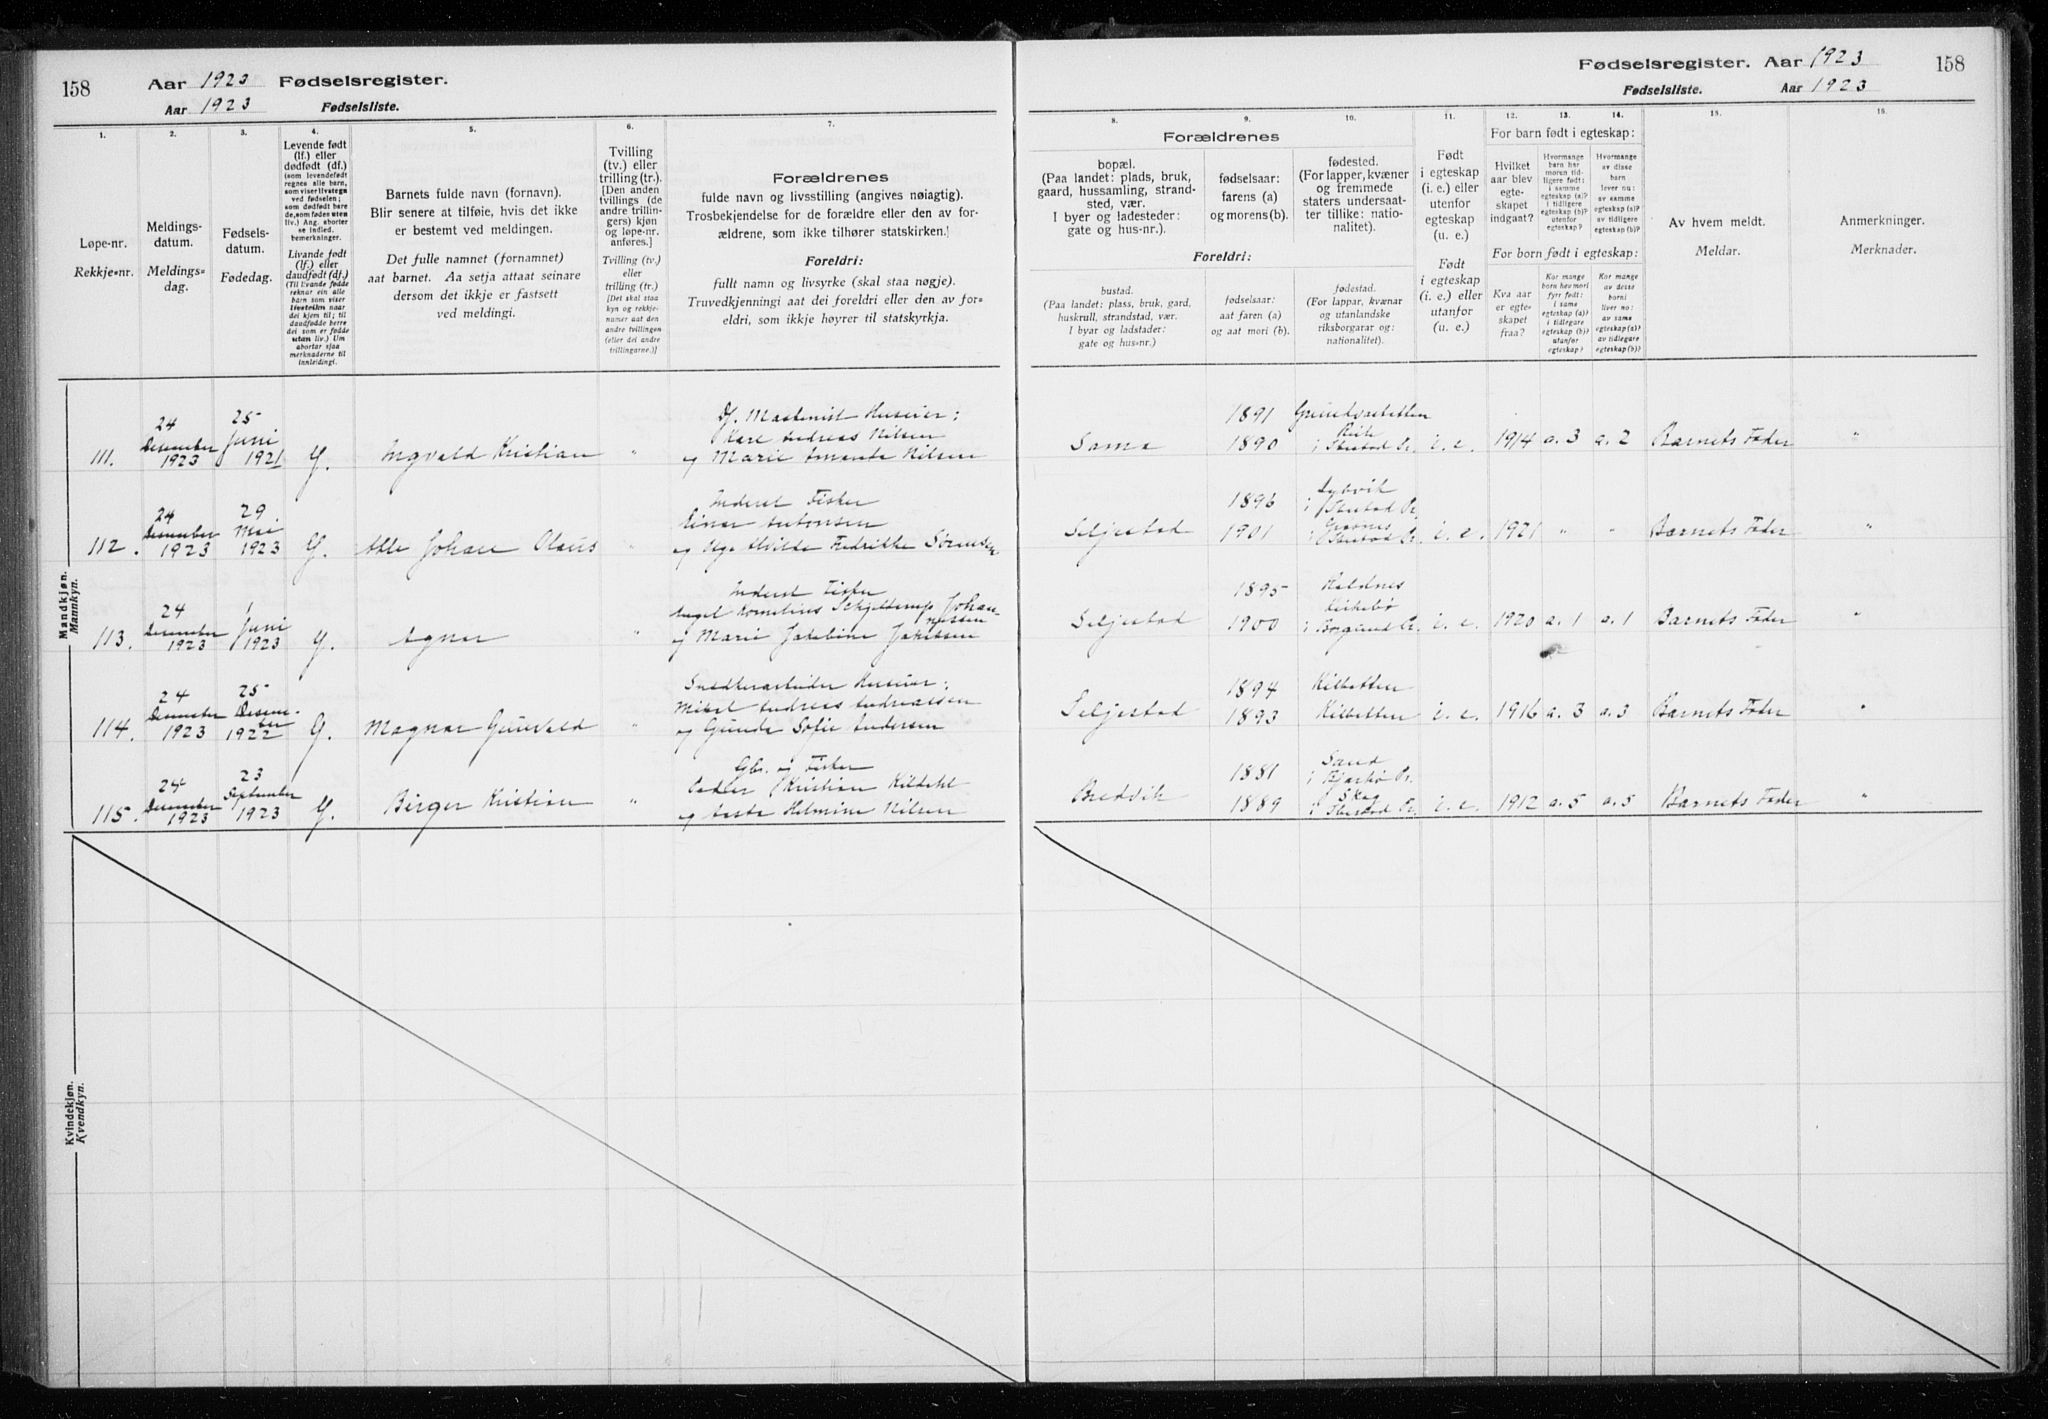 158
Aar 1923 Fødselsregister.
Aar 1923 Fødselsliste.
1. 2. 3. 4. 5. 6. 7.
Løpe-nr.
Rekkje-nr.
Meldings-
datum.
Meldings-
dag.
Fødsels-
datum.
Fødedag.
Levende født
(lf.) eller
dødfødt (df.)
(som levendefødt
regnes alle barn,
som viser livstegn
ved fødselen;
som dødfødt bare
de, som fødes uten
liv.) Ang. aborter
se indled.
bemerkninger.
Livande født
(lf.) eller
daudfødt (df.)
(Til livande fødde
reknar ein alle
barn som viser
livsteikn naar
dei kjem til; til
daudfødde berre
dei som er fødde
utan liv.) Um
abortar sjaa
merknaderne til
innleiding!
Barnets fulde navn (fornavn).
Blir senere at tilføie, hvis det ikke
er bestemt ved meldingen.
Det fulle namnet (fornamnet)
aat barnet. Aa setja attaat seinare
dersom det ikkje er fastsett
ved meldingi.
Tvilling
(tv.) eller
trilling (tr.).
[Den anden
tvillings (de
andre trillin-
gers) kjøn
og løpe-nr.
anføres.]
Tvilling (tv.)
eller
trilling (tr.)
[Det skal staa
kyn og rekkje-
numer aat den
andre tvillingen
(eller dei andre
trillingarne.)]
Forældrenes
fulde navn og livsstilling (angives nøiagtig).
Trosbekjendelse for de forældre eller den av for-
ældrene, som ikke tilhører statskirken.
Foreldri:
fullt namn og livsyrke (skal staa nøgje).
Truvedkjenningi aat dei foreldri eller den av for-
eldri, som ikkje høyrer til statskyrkja.
Mandkjøn.
Mannkyn.
24 25 Df. Maskinist Huseier:
Desember Juni Karl Andreas Nilsen
111. 1923 1921 G. Ingvald Kristian " og Marie Amanda Nilsen
24 29 Inderst Fisker
Desember Mai Einar Antonsen
112. 1923 1923 G. Atle Johan Olaus " og Alvilde Fredrikke Sørensen
24 1 Inderst Fisker
Desember Juni Kornelius Schjelderup Johan-
nessen
113. 1923 1923 G. Agnar " og Marie Jakobine Jakobsen
24 25 Huseier:
Desember Desem- Mikal Andreas Andreassen
ber
114. 1923 1922 G. Magnar Gunvald " og Gunda Sofie Andersen
24 23 Gbr. og Fisker
Desember September Peder Kristian Kildahl
115. 1923 1923 G. Birger Kristian " og Helmine Nilsen
Kvindekjøn.
Kvendkyn.
Fødselsregister. Aar 1923 158
Fødselsliste. Aar 1923
8. 9. 10. 11. 12. 13. 14. 15. 16.
Forældrenes
bopæl.
(Paa landet: plads, bruk,
gaard, hussamling, strand-
sted, vær.
I byer og ladesteder:
gate og hus-nr.).
fødselsaar:
farens (a)
og morens (b).
fødested.
(For lapper, kvæner
og fremmede
staters undersaat-
ter tillike: natio-
nalitet).
Foreldri:
bustad.
(Paa landet: plass, bruk, gard,
huskrull, strandstad, vær.
I byar og ladstader:
gate og hus-nr.)
fødselsaar:
aat faren (a)
og aat mori (b).
fødestad.
(For lappar, kvænar
og utanlandske
riksborgarar og:
nationalitet).
Født
i egteskap
(i. e.) eller
utenfor
egteskap
(u. e.)
Født
i egteskap
(i. e.) eller
utanfor
(u. e.)
For barn født i egteskap:
Hvilket
aar blev
egte-
skapet
indgaat?
Hvormange
barn har
moren tid-
ligere født:
i samme
egteskap (a)?
i tidligere
egteskap (b)?
utenfor
egteskap?
Hvormange
av disse
barn
lever nu:
av samme
egteskap (a)?
av tidligere
egteskap (b)?
For born født i egteskap:
Kva aar
er egte-
skapet
fraa?
Kor mange
born hev mori
fyrr født:
i same
egteskap (a)?
i tidlegare
egteskap (b)?
utanfor
egteskap?
Kor mange
av desse
borni
liver no:
av same
egteskap (a)?
av tidlegare
egteskap (b)?
Av hvem meldt.
Meldar.
Anmerkninger.
Merknader.
1891
Sama 1890 i Ibestad Pr. i. e. 1914 a. 3 a. 2 Barnets Fader "
1896 i Ibestad Pr.
Seljestad 1901 i Ibestad Pr. i. e. 1921 " " Barnets Fader "
1895
Seljestad 1900 i Borgund Pr. i. e. 1920 a. 1 a. 1 Barnets Fader "
1894 Kilbotten
Seljestad 1893 Kilbotten i. e. 1916 a. 3 a. 3 Barnets Fader "
1881 Sand
i Bjarkø Pr.
Skog
Bredvik 1889 i Ibestad Pr. i. e. 1912 a. 5 a. 5 Barnets Fader "